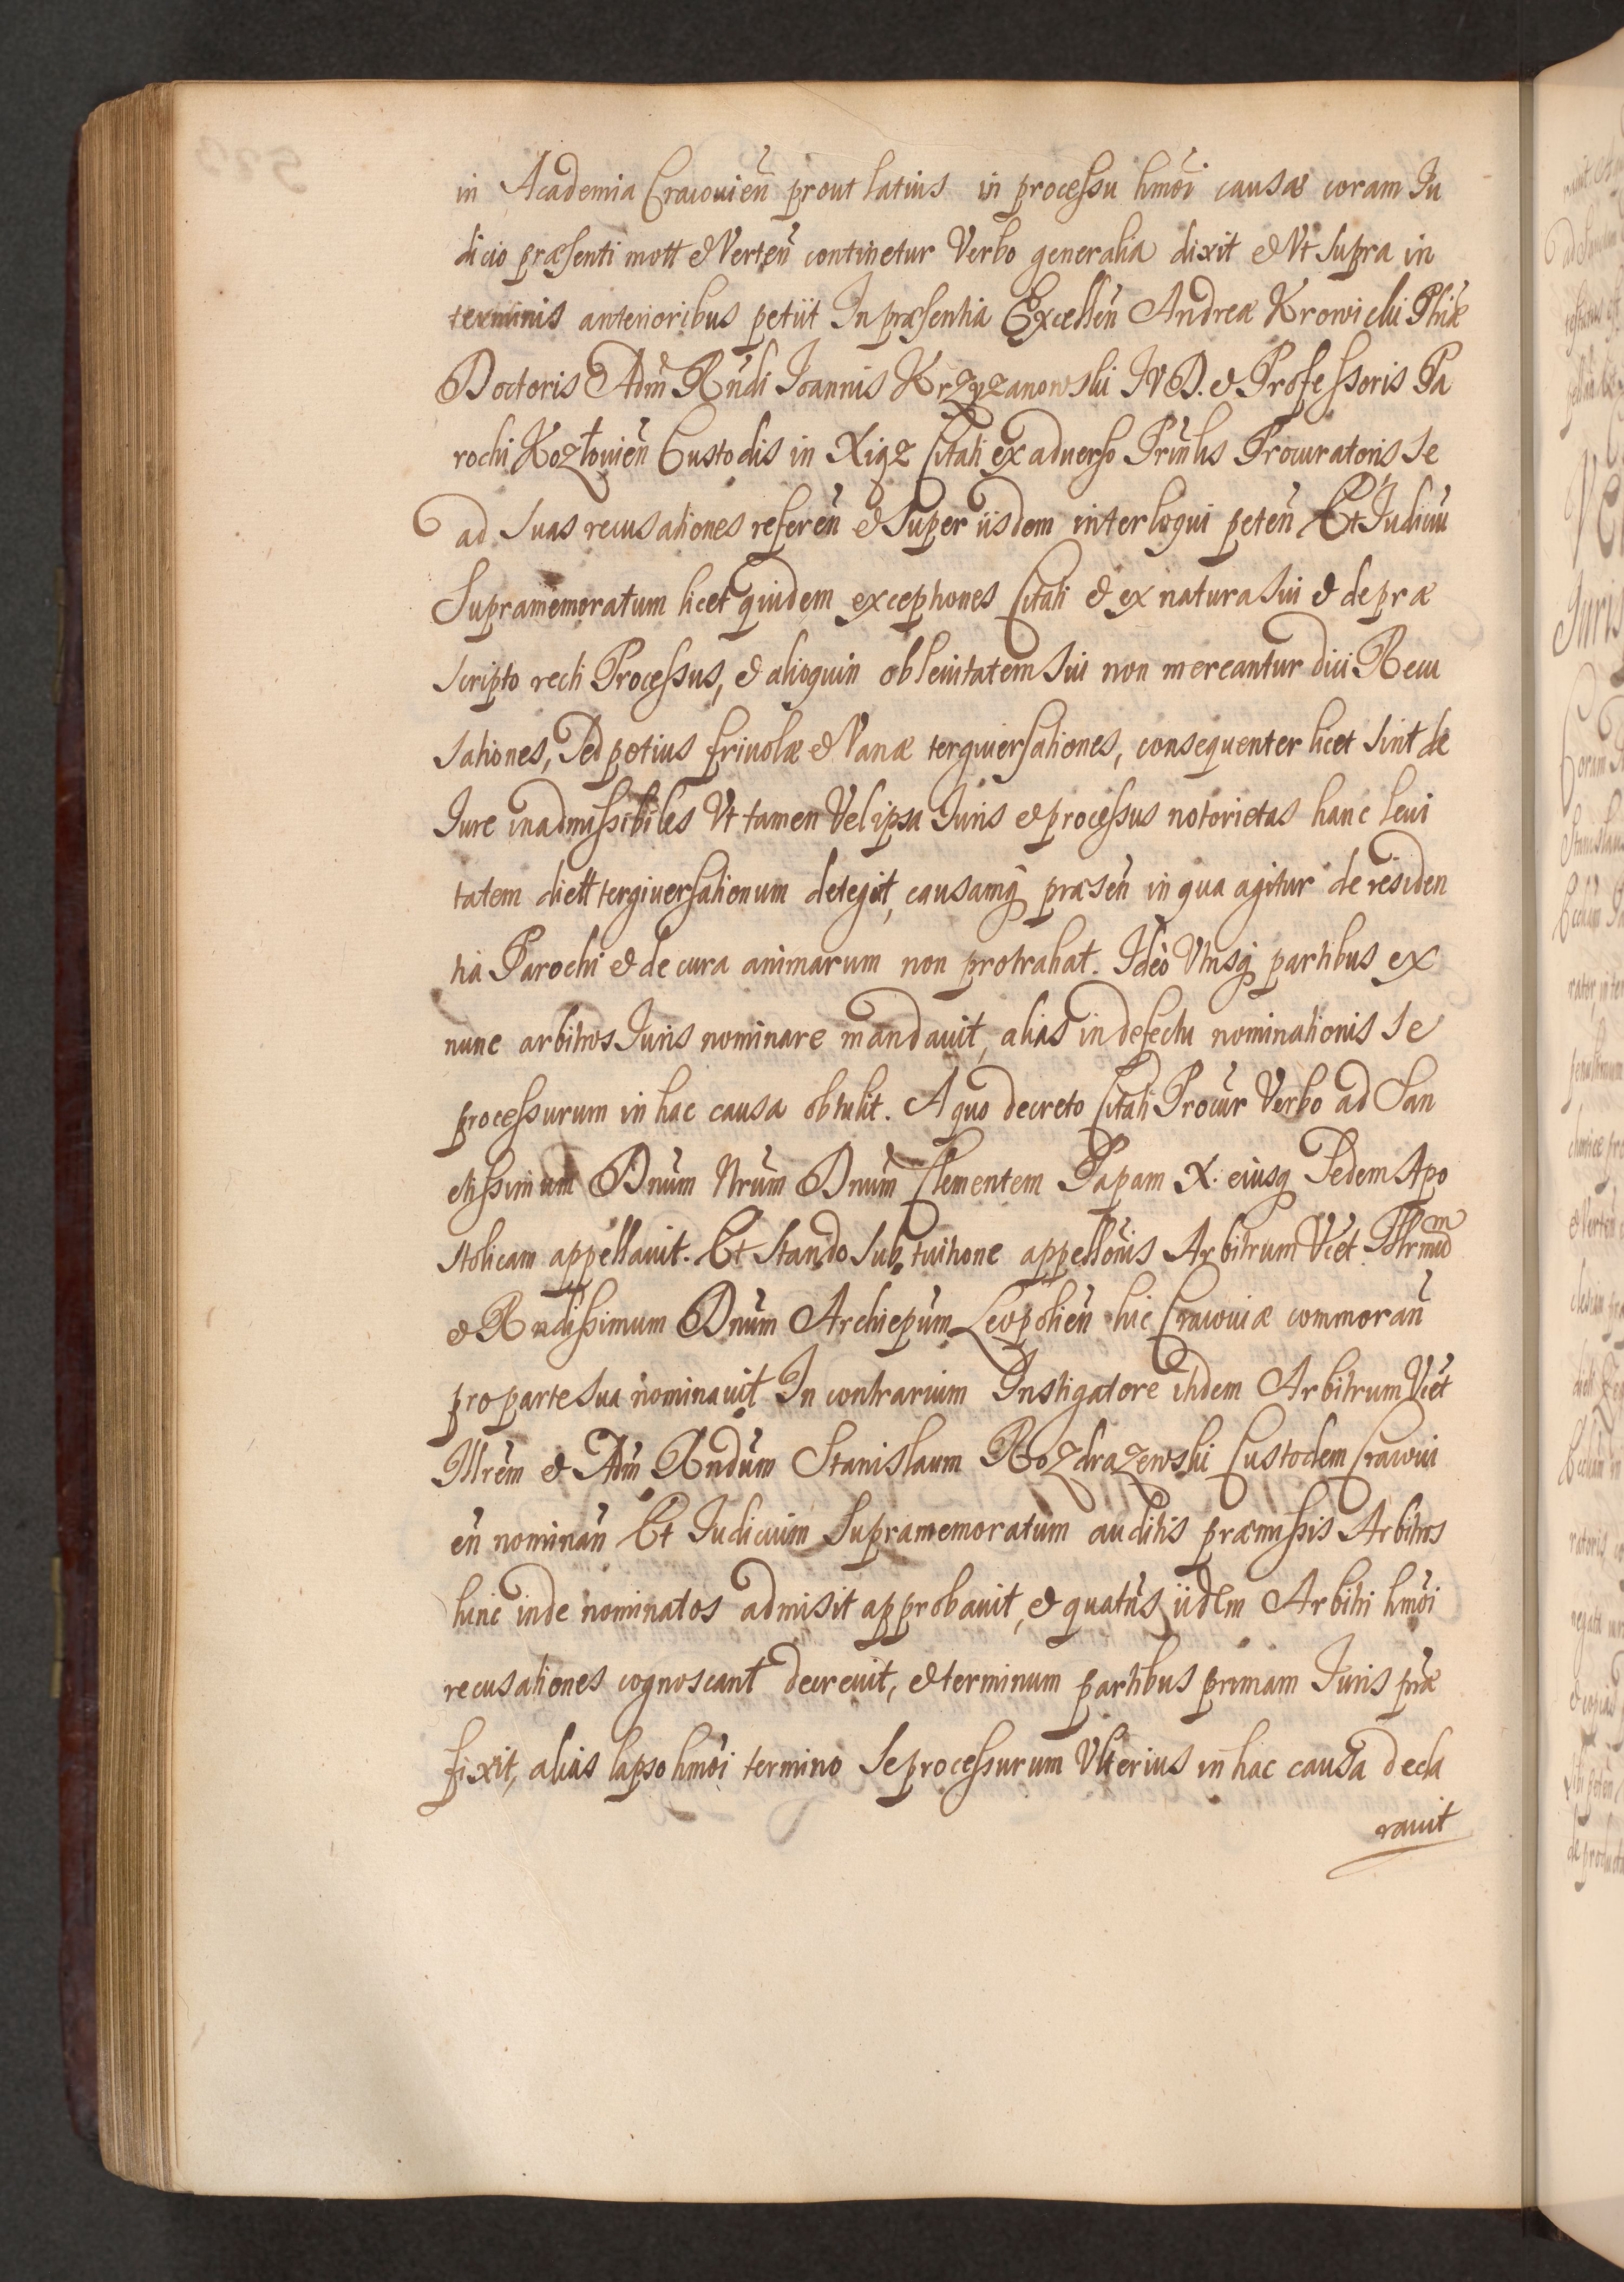 in Academia Cracouien̄ prout latius in processu hmōi causae coram Iu
dicio præsenti mott & Verten̄ continetur Verbo generalia dixit & Vt supra in
terminis anterioribus petiit In præsentia Excellen̄ Andreæ Krowicki Phiæ
Doctoris Adm̄ Rn̄di Ioannis Krzyzanowski IVD. & Professoris Pa
rochi Kozłouien̄ Custodis in Xiąz Citati ex aduerso Prin̄lis Procuratoris se
ad suas recusationes referen̄ & super iisdem interloqui peten̄ Et Iudiciū
Supramemoratum licet quidem exceptiones Citati & ex natura sui & de præ
scripto recti Processus, & alioquin ob leuitatem sui non mereantur dici Recu
sationes, sed potius friuolæ & Vanæ terguiersationes, consequenter licet sint de
Iure inadmissibiles Vt tamen Vel ipsa Iuris & processus notorietas hanc leui
tatem dictt tergiuersationum detegit, causamq̄ præsen̄ in qua agitur de residen
tia Parochi & de cura animarum non protrahat. Ideo Vtrisq̄ partibus ex
nunc arbitros Iuris nominare mandauit, alias in defectu nominationis se
processurum in hac causa obtulit. A quo decreto Citati Procur̄ Verbo ad San
ctissimum Dn̄um Nr̄um Dn̄um Clementem Papam X. eiusq̄ Sedem Apo
stolicam appellauit. Et stando sub tuitione appellōnis Arbitrum Vꝫet Illrmūm
& Rndissimum Dn̄um Archiep̄um Leopolien̄ hic Cracouiæ commoran̄
pro parte sua nominauit In contrarium Instigatore itidem Arbitrum Vꝫet
Illrēm & Adm̄ Rn̄dum Stanislaum Rozdrazewski Custodem Cracoui
en̄ nominan̄ Et Iudicium Supramemoratum auditis præmissis Arbitros
hinc inde nominatos admisit approbauit, & quatn̄s iidem Arbitri hmōi
recusationes cognoscant decreuit, & terminum partibus primam Iuris præ
fixit, alias lapso hmōi termino se processurum Vlterius in hac causa decla
rauit